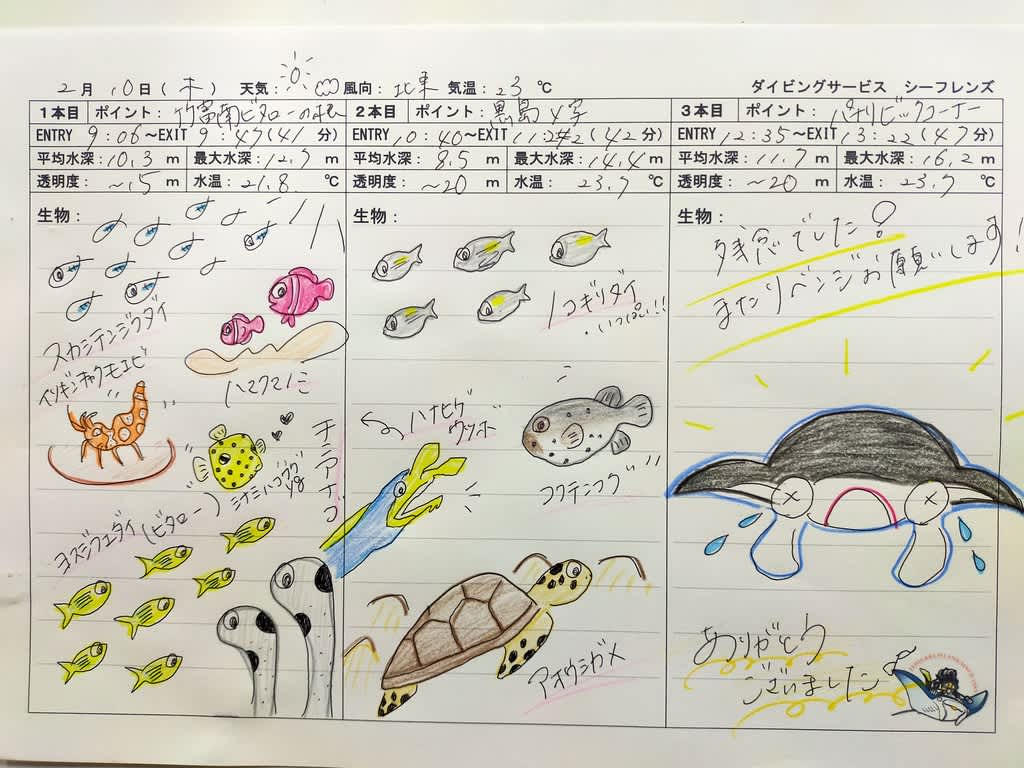 2月10日(木) 天気: 風向:北東 気温:23℃ ダイビングサービス シーフレンズ
1本目 ポイント:竹富南ビタローの根
ENTRY 9:06~EXIT 9:47(41分)
平均水深:10.3m 最大水深:12.7m
透明度:~15m 水温:21.8℃
生物:
スカシテンジクダイ
ハマクマノミ
イソギンチャクモエビ
ミナミハコフグ
yg
チンアナゴ
ヨスジフエダイ(ビタロー)
2本目 ポイント:黒島V字
ENTRY 10:40~EXIT 11:22(42分)
平均水深:8.5m 最大水深:14.4m
透明度:~20m 水温:23.7℃
生物:
ノコギリダイ
いっぱい!!
ハナヒゲ
ウツボ
コクテンフグ
アオウミガメ
3本目 ポイント:パナリビッグコーナー
ENTRY 12:35~EXIT 13:22(47分)
平均水深:11.7m 最大水深:16.2m
透明度:~20m 水温:23.7℃
生物:
残念でした!
またリベンジお願いします!!
ありがとう
ございました